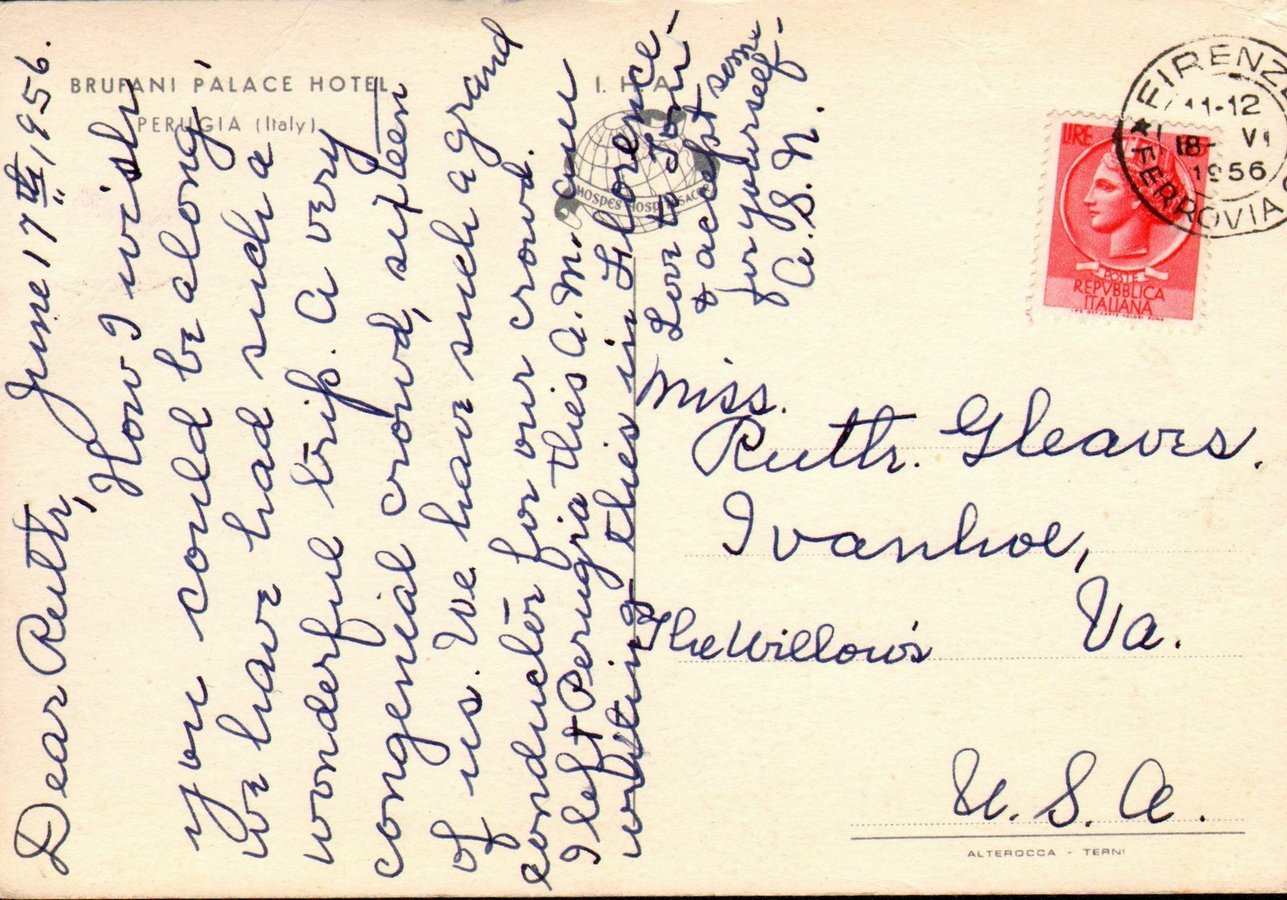 BRUFANI PALACE HOTEL
PERUGIA (Italy)
I. H. A.
HOSPES HOSPITI SACER
June 17th, 1956.
Dear Ruth,
How I wish
you could be along,
we have had such a
wonderful trip. A very
congenial crowd, sixteen
of us. We have such a grand
conductor for our crowd.
I left Perugia this A.M. am
writing this in Florence-
Love to your-
& accept some
for yourself-
A. S. N.
FIRENZE
11-12
18- VI
1956
FERROVIA
LIRE
POSTE
REPVBBLICA
ITALIANA
Miss.
Ruth. Gleaves.
Ivanhoe,
Va.
The Willow's
U. S. A.
ALTEROCCA - TERNI